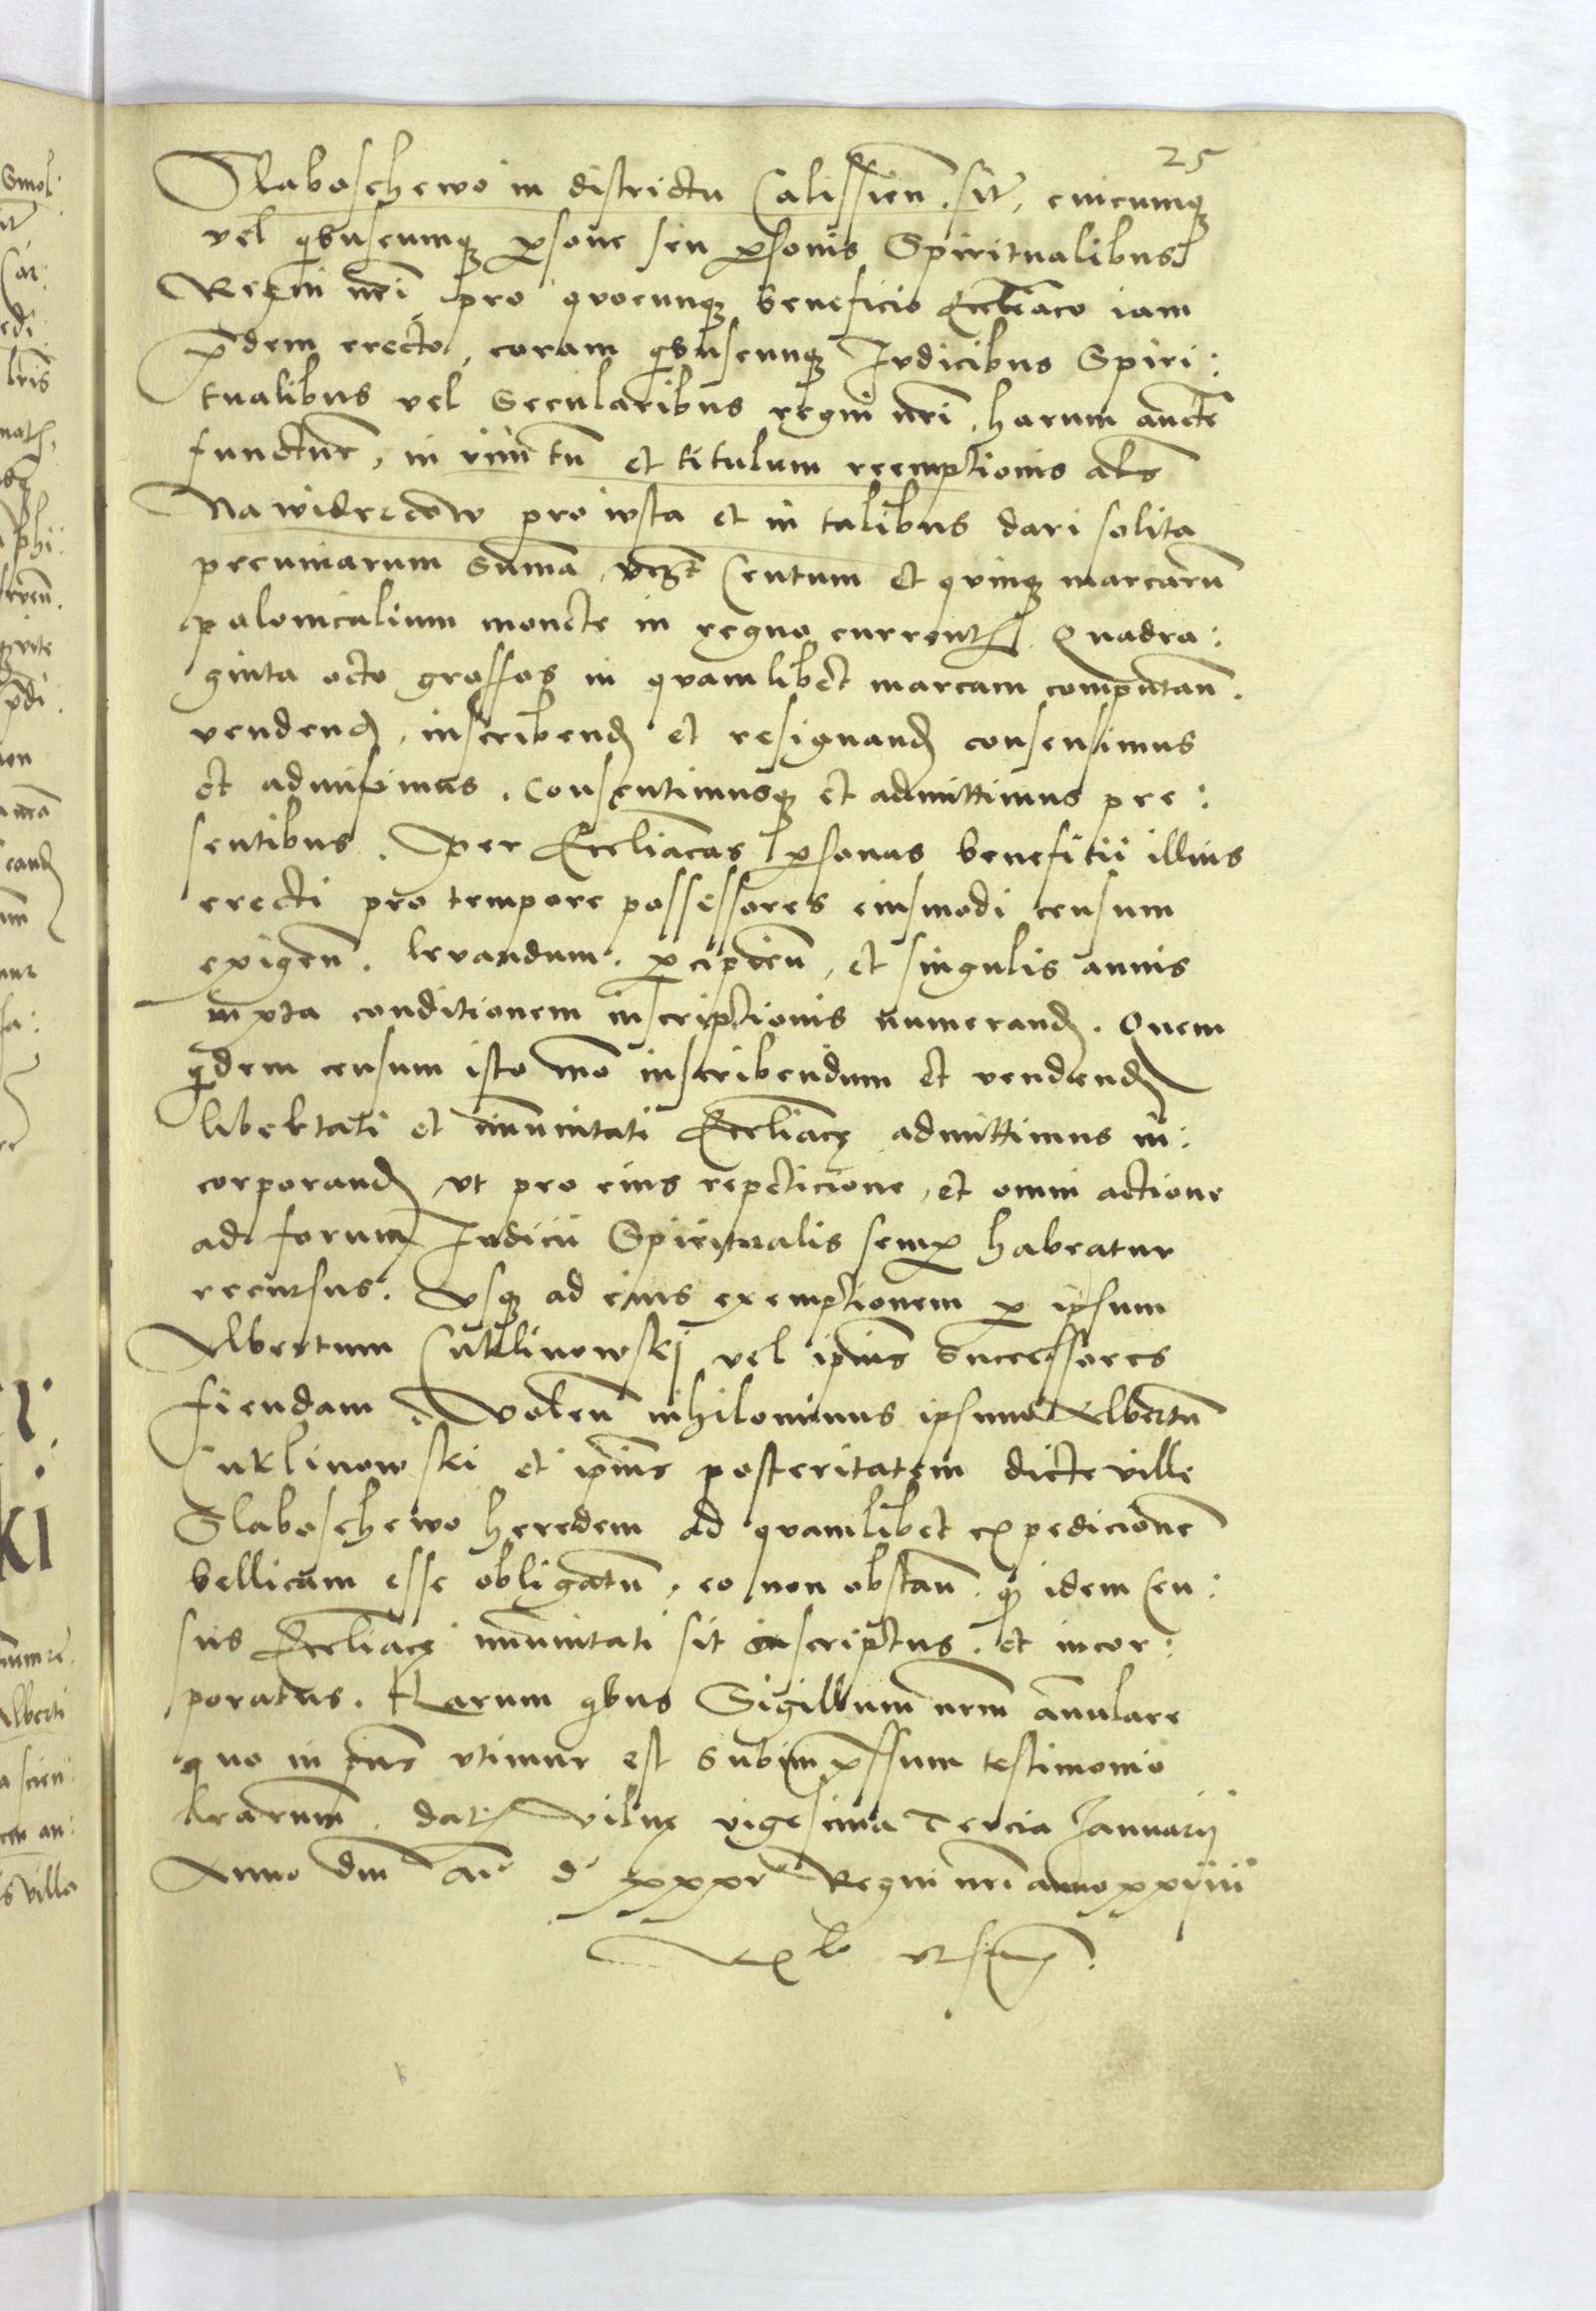 25
Slaboschewo in districtu Calissien̄. sit̄, cuicumq̨
vel qībuscumq̨ p̱sone seu p̱sonis Spiritualibus
Regni nr̄i pro quocunq̨ beneficio Eccl̄iaco iam
p̄dem erecto, coram qībuscunq̨ Iudicibus Spiri:
tualibus vel Secularibus regni nr̄i, harum auct̄e
functur̄, in vim tn̄ et titulum reemptionis al̄s
Na widrecow pro iusta et in talibus dari solita
pecuniarum sum̄a, vcꝫt Centum et quinq̨ marcarū
polonicalium monete in regno current̨. Quadra:
ginta octo grossos in quamlibet marcam computan̄.
vendend̨, inscribend̨ et resignand̨ consensimus
et admisimus. Consentimusq̨ et admittimus pre:
sentibus. Per Eccl̄iacas p̱sonas benefitii illius
erecti pro tempore possessores eiusmodi censum
exigen̄. levandum. p̱cipien̄, et singulis annis
iuxta conditionem inscriptionis numerand̨. Quem
qīdem censum isto mō inscribendum et vendend̨
libertati et im̄unitati Eccl̄iacę admittimus in:
corporand̨ ut pro eius repeticione, et omni actione
ad forum Iudicii Spiritualis semp̱ habeatur
recursus. Usq̨ ad eius exemptionem p̱ ipsum
Albertum Cuklinowskj vel ipīus Successores
fiendam. Volen̄ nihilominus ipsum Albertū
Cuklinowski et ipīus posteritatem dicte ville
Slaboschewo heredem ad quamlibet expedicionē
bellicam esse obligatū, eo non obstan̄. qꝫ idem Cen:
sus Eccl̄iacę im̄unitati sit inscriptus. et incor:
poratus. Harum qībus Sigillum nr̄m an̄ulare
quo in p̄ns utimur est Subim p̱ssum testimonio
lr̄arum. dat̨ Vilnę vigesima Tercia Januarij
Anno dn̄i M̄ D xxxvi Regni nr̄i anno xxviiii